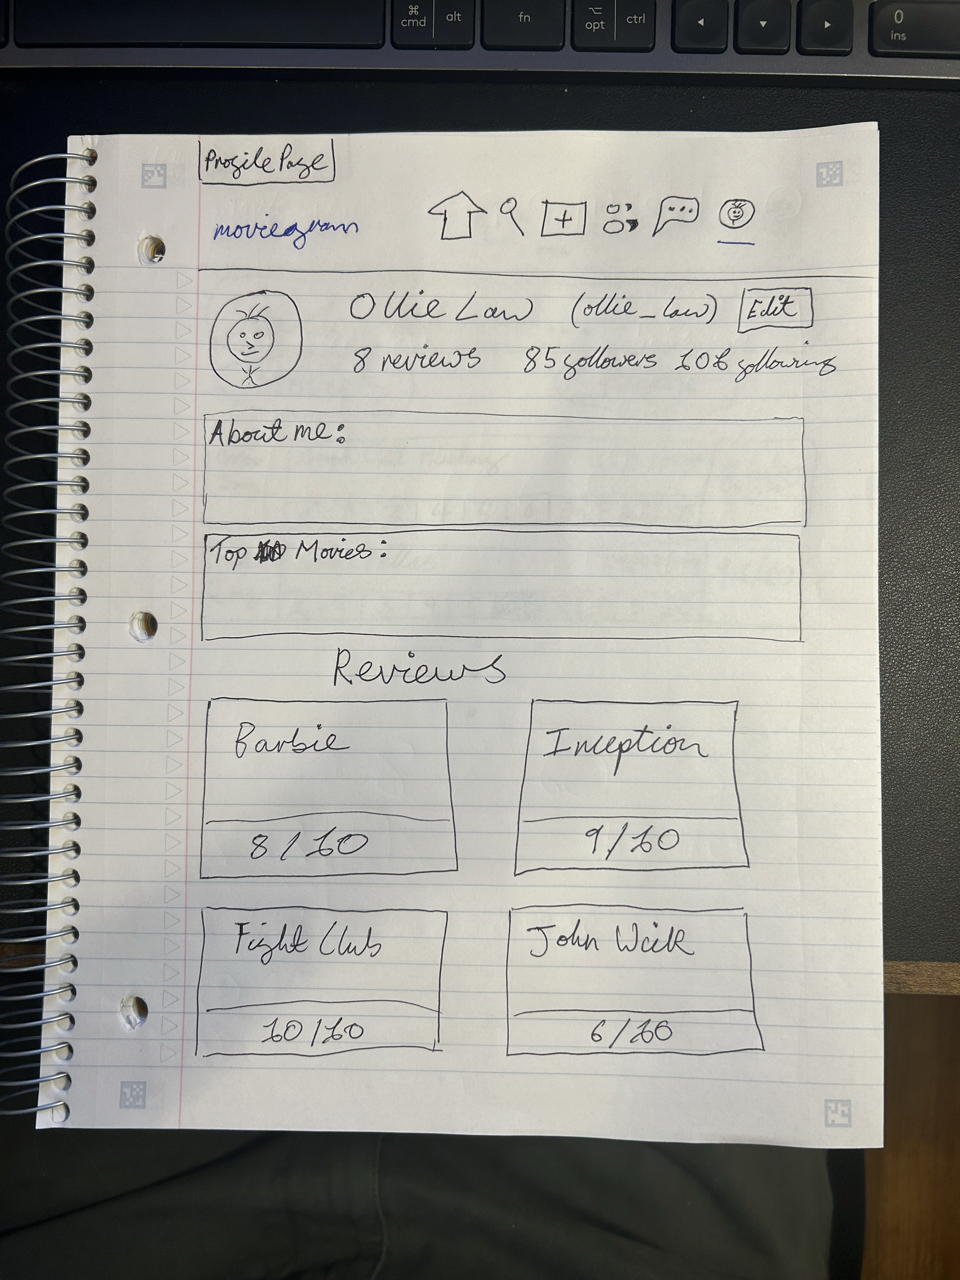 ⌘ cmd alt fn ⌥ opt ctrl 0 ins
Profile Page
moviegram
Ollie Law (ollie_law) Edit
8 reviews 85 followers 108 following
About me:
Top Movies:
Reviews
Barbie Inception
8/10 9/10
Fight Club John Wick
10/10 6/10